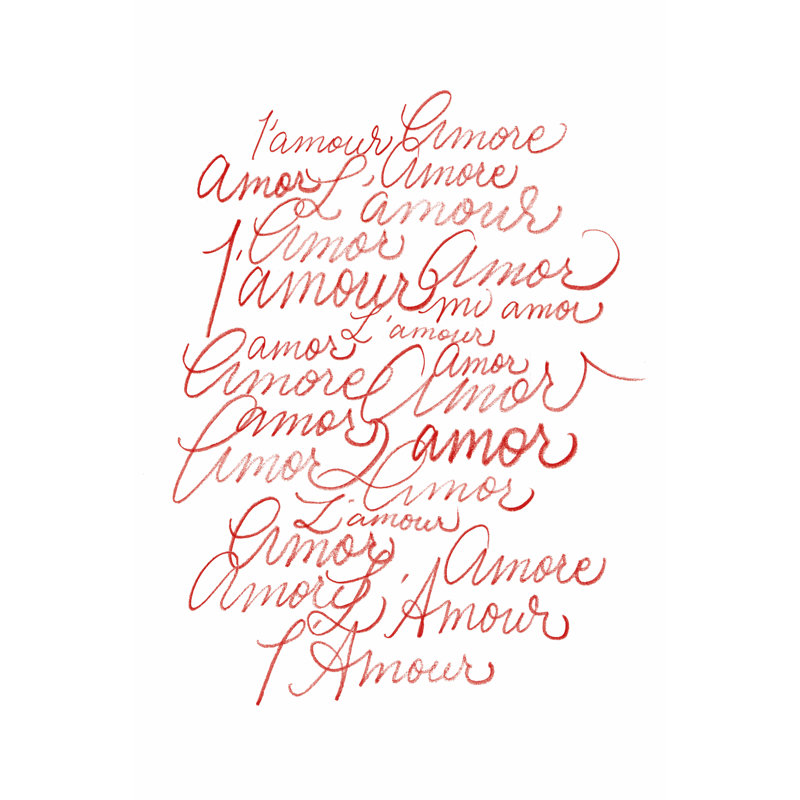 l'amour Amore
Amor L'Amore
L'amour
Amor
l'amour Amor
mi amor
L'amour
amor Amor
Amore Amor
amor amor
Amor Amor
L'amour
Amor Amore
Amor L'Amour
l'Amour